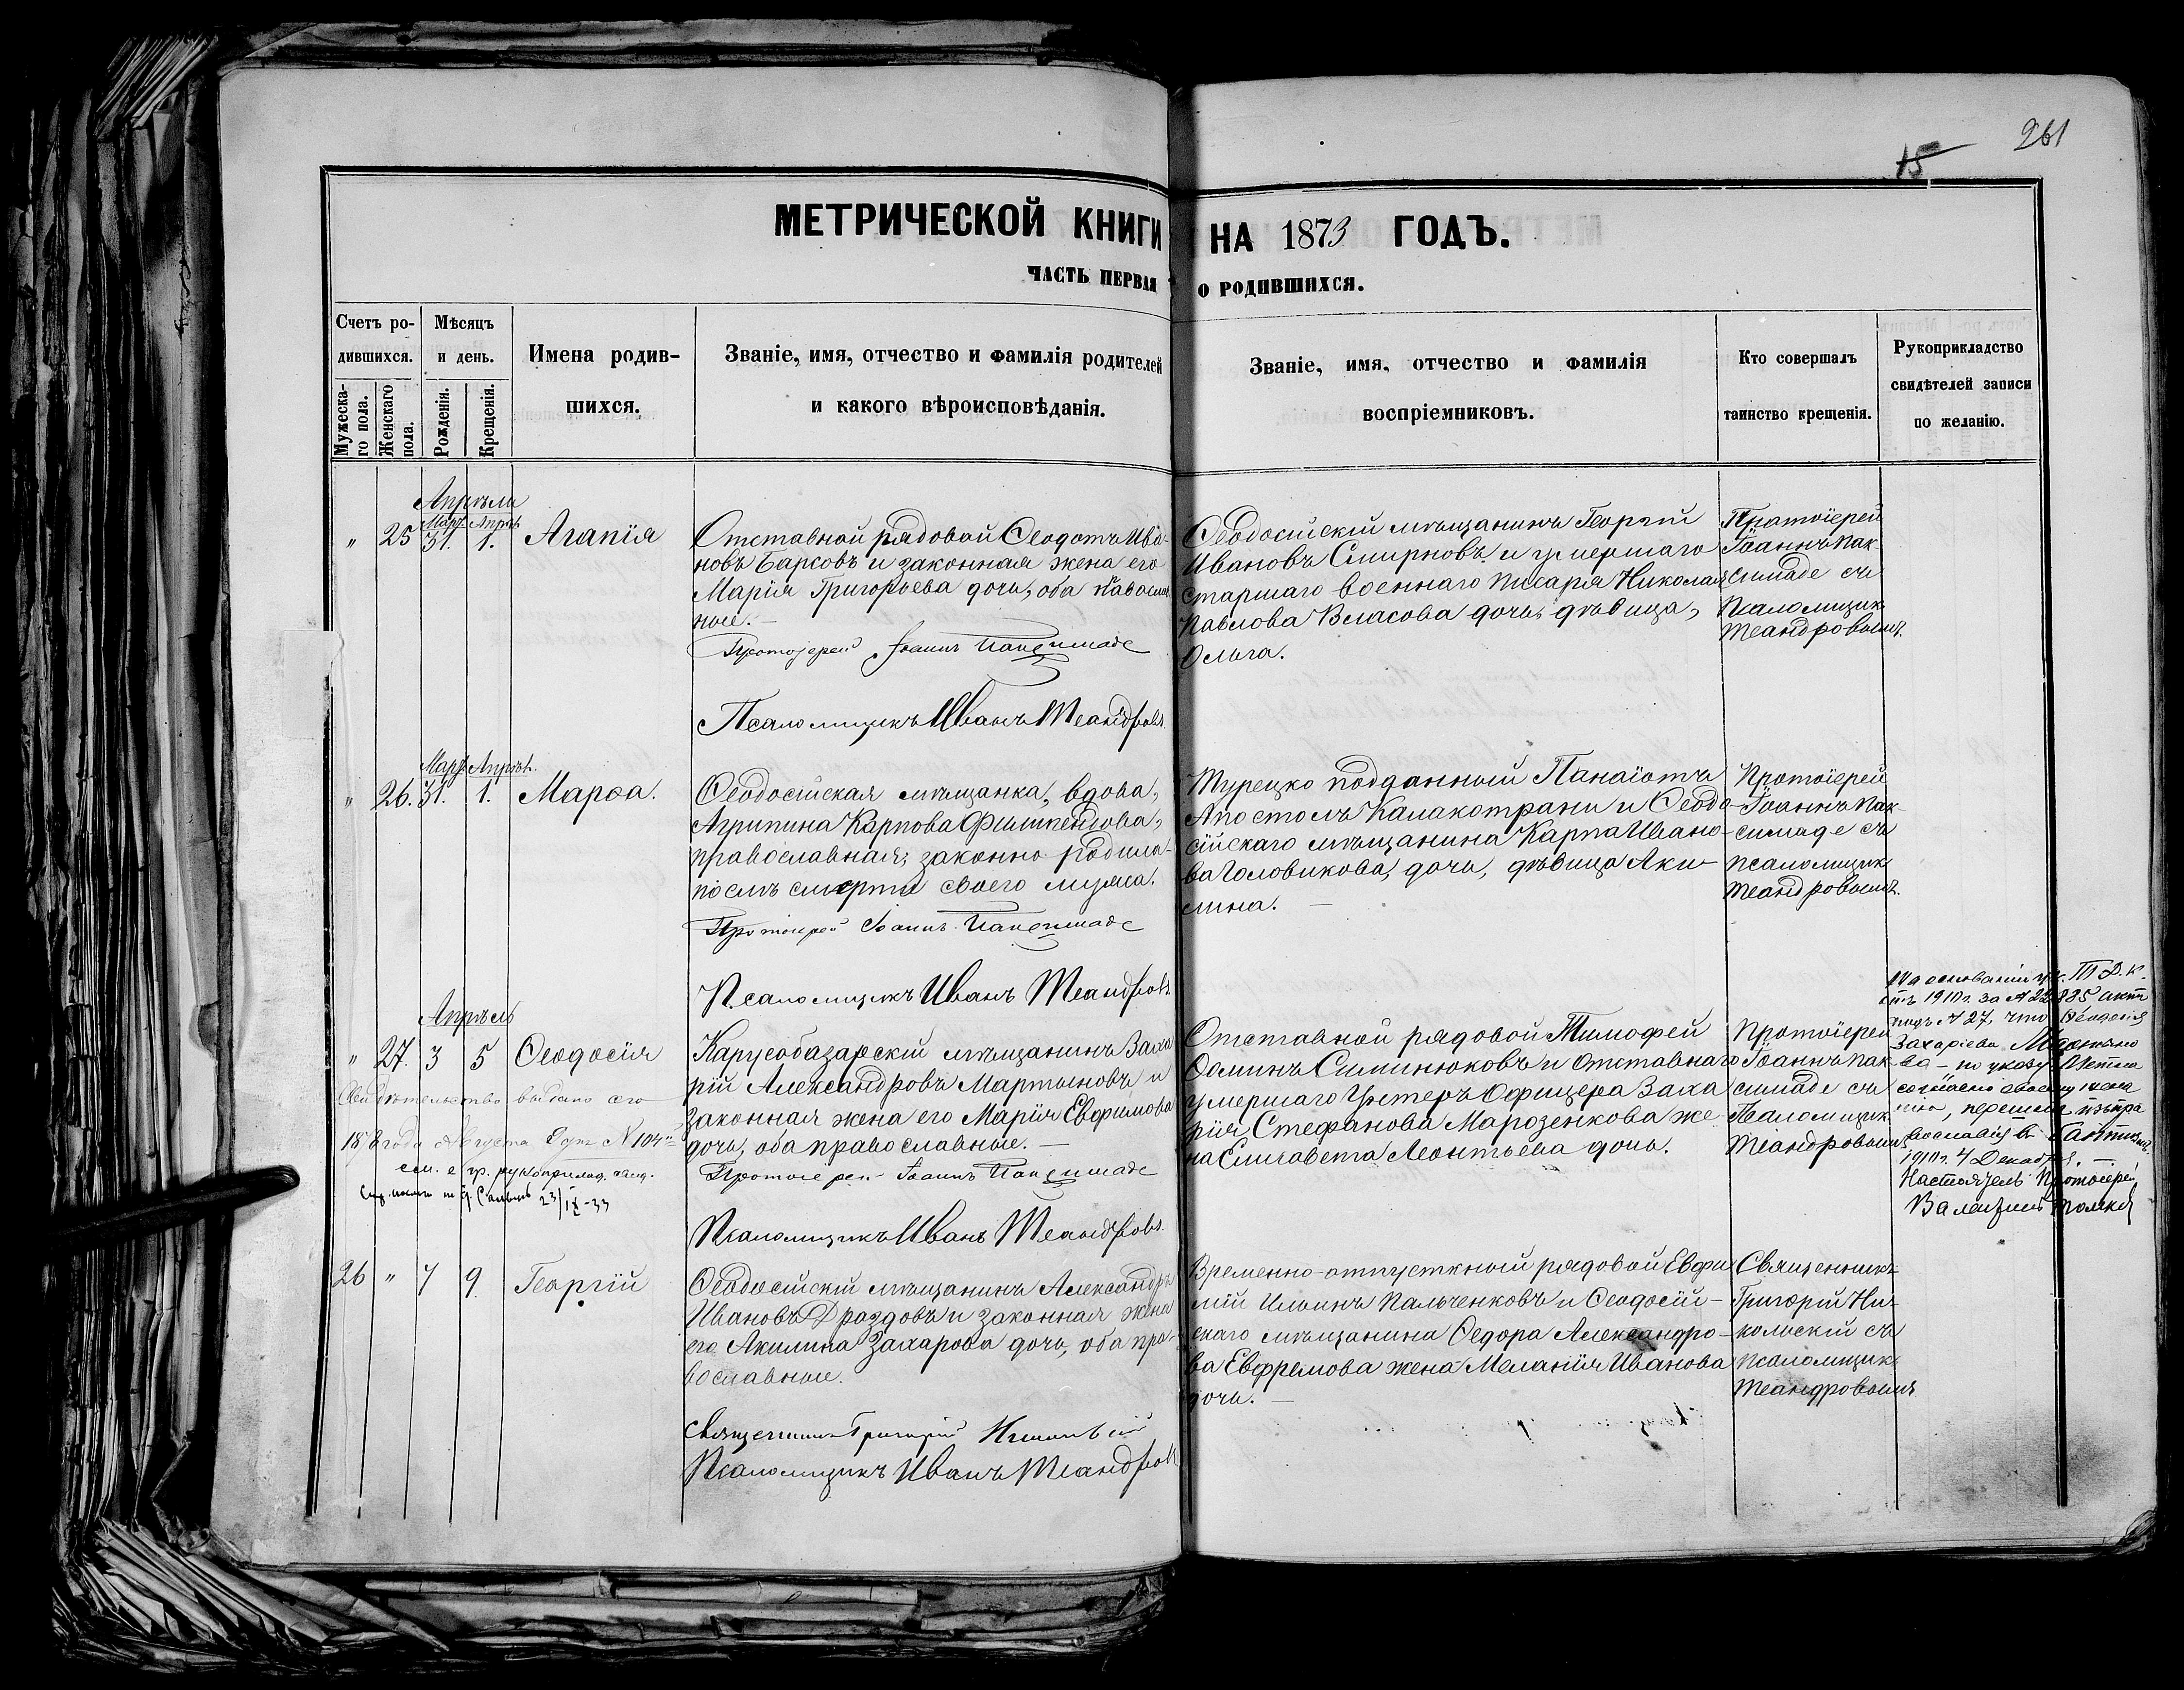 261
15
МЕТРИЧЕСКОЙ КНИГИ НА 1873 ГОДЪ.
ЧАСТЬ ПЕРВАЯ О РОДИВШИХСЯ.
Счетъ ро-
дившихся.
Мужеска-
го пола.
Женскаго
пола.
Мѣсяцъ
и день.
Рожденія.
Крещенія.
Имена родив-
шихся.
Званіе, имя, отчество и фамилія родителей
и какого вѣроисповѣданія.
Званіе, имя, отчество и фамилія
воспріемниковъ.
Кто совершалъ
таинство крещенія.
Рукоприкладство
свидѣтелей записи
по желанію.
Апрѣля
Мар. Апрѣ
" 25 31. 1. Агапія
Отставной рядовой Ѳеодотъ Ива-
новъ Барсовъ и законная жена его
Марія Григорьева дочь, оба
ные.
Протоіерей Іоаннъ Паксимаде
Псаломщикъ Иванъ Теандровъ
Ѳеодосійскій мѣщанинъ Георгій
Ивановъ Смирновъ и умершаго
старшаго военнаго писаря Николая
Павлова Власова дочь, дѣвица,
Ольга.
Протоіерей
Іоаннъ Пак-
симаде съ
Псаломщик
Теандровымъ.
Мар. Апрѣл.
" 26. 31. 1. Марѳа.
Ѳеодосійская мѣщанка, вдова,
Агрипина Карпова
православная, законно родила
послѣ смерти своего мужа.
Протоіерей Іоаннъ Паксимаде
Псаломщикъ Иванъ Теандровъ
Турецко подданный Панаіотъ
Апостолъ Калакотрани и Ѳеодо-
сійскаго мѣщанина Карпа Ивано-
ва Головикова, дочь, дѣвица Аки-
лина.
Протоіерей
Іоаннъ Пак-
симаде съ
псаломщик
Теандровымъ.
Апрѣль
" 27. 3 5 Ѳеодосія
Свидѣтельство выдано его
года Августа N 104
Карусобазарскій мѣщанинъ Заха
рій Александровъ Мартыновъ и
законная жена его Марія Евфимова
дочь, оба православные.
Протоіерей Іоаннъ Паксимаде
Псаломщикъ Иванъ Теандровъ
Отставной рядовой Тимофей
Ѳоминъ Симинюковъ и отставнаго
умершаго Унтеръ Офицера Заха
рія Стефанова Марозенкова же-
на Елисавета Леонтьева дочь.
Протоіерей
Іоаннъ Пак-
симаде съ
Псаломщик
Теандровымъ
На основаніи ук. Т. Д. К.
1910 г. за N 22885 актъ
подъ N 27, что Ѳеодосія
Захаріева Мартыно
ва - по указу
согласно своему жела
нію, перешла изъ пра
вославія въ
1910 г. 4 Декабря.
Настоятель Протоіерей
26 " 7 9 Георгій
Ѳеодосійскій мѣщанинъ Александръ
Ивановъ Дроздовъ и законная жена
его Акилина Захарова дочь, оба пра-
вославные.
Священникъ Григорій Никольскій
Псаломщикъ Иванъ Теандровъ
Временно-отпускной рядовой Евфи
мій Ильинъ Пальченковъ и Ѳеодосій-
скаго мѣщанина Ѳедора Александро-
ва Евфремова жена Меланія Иванова
дочь.
Священникъ
Григорій Ни-
кольскій съ
псаломщик
Теандровымъ